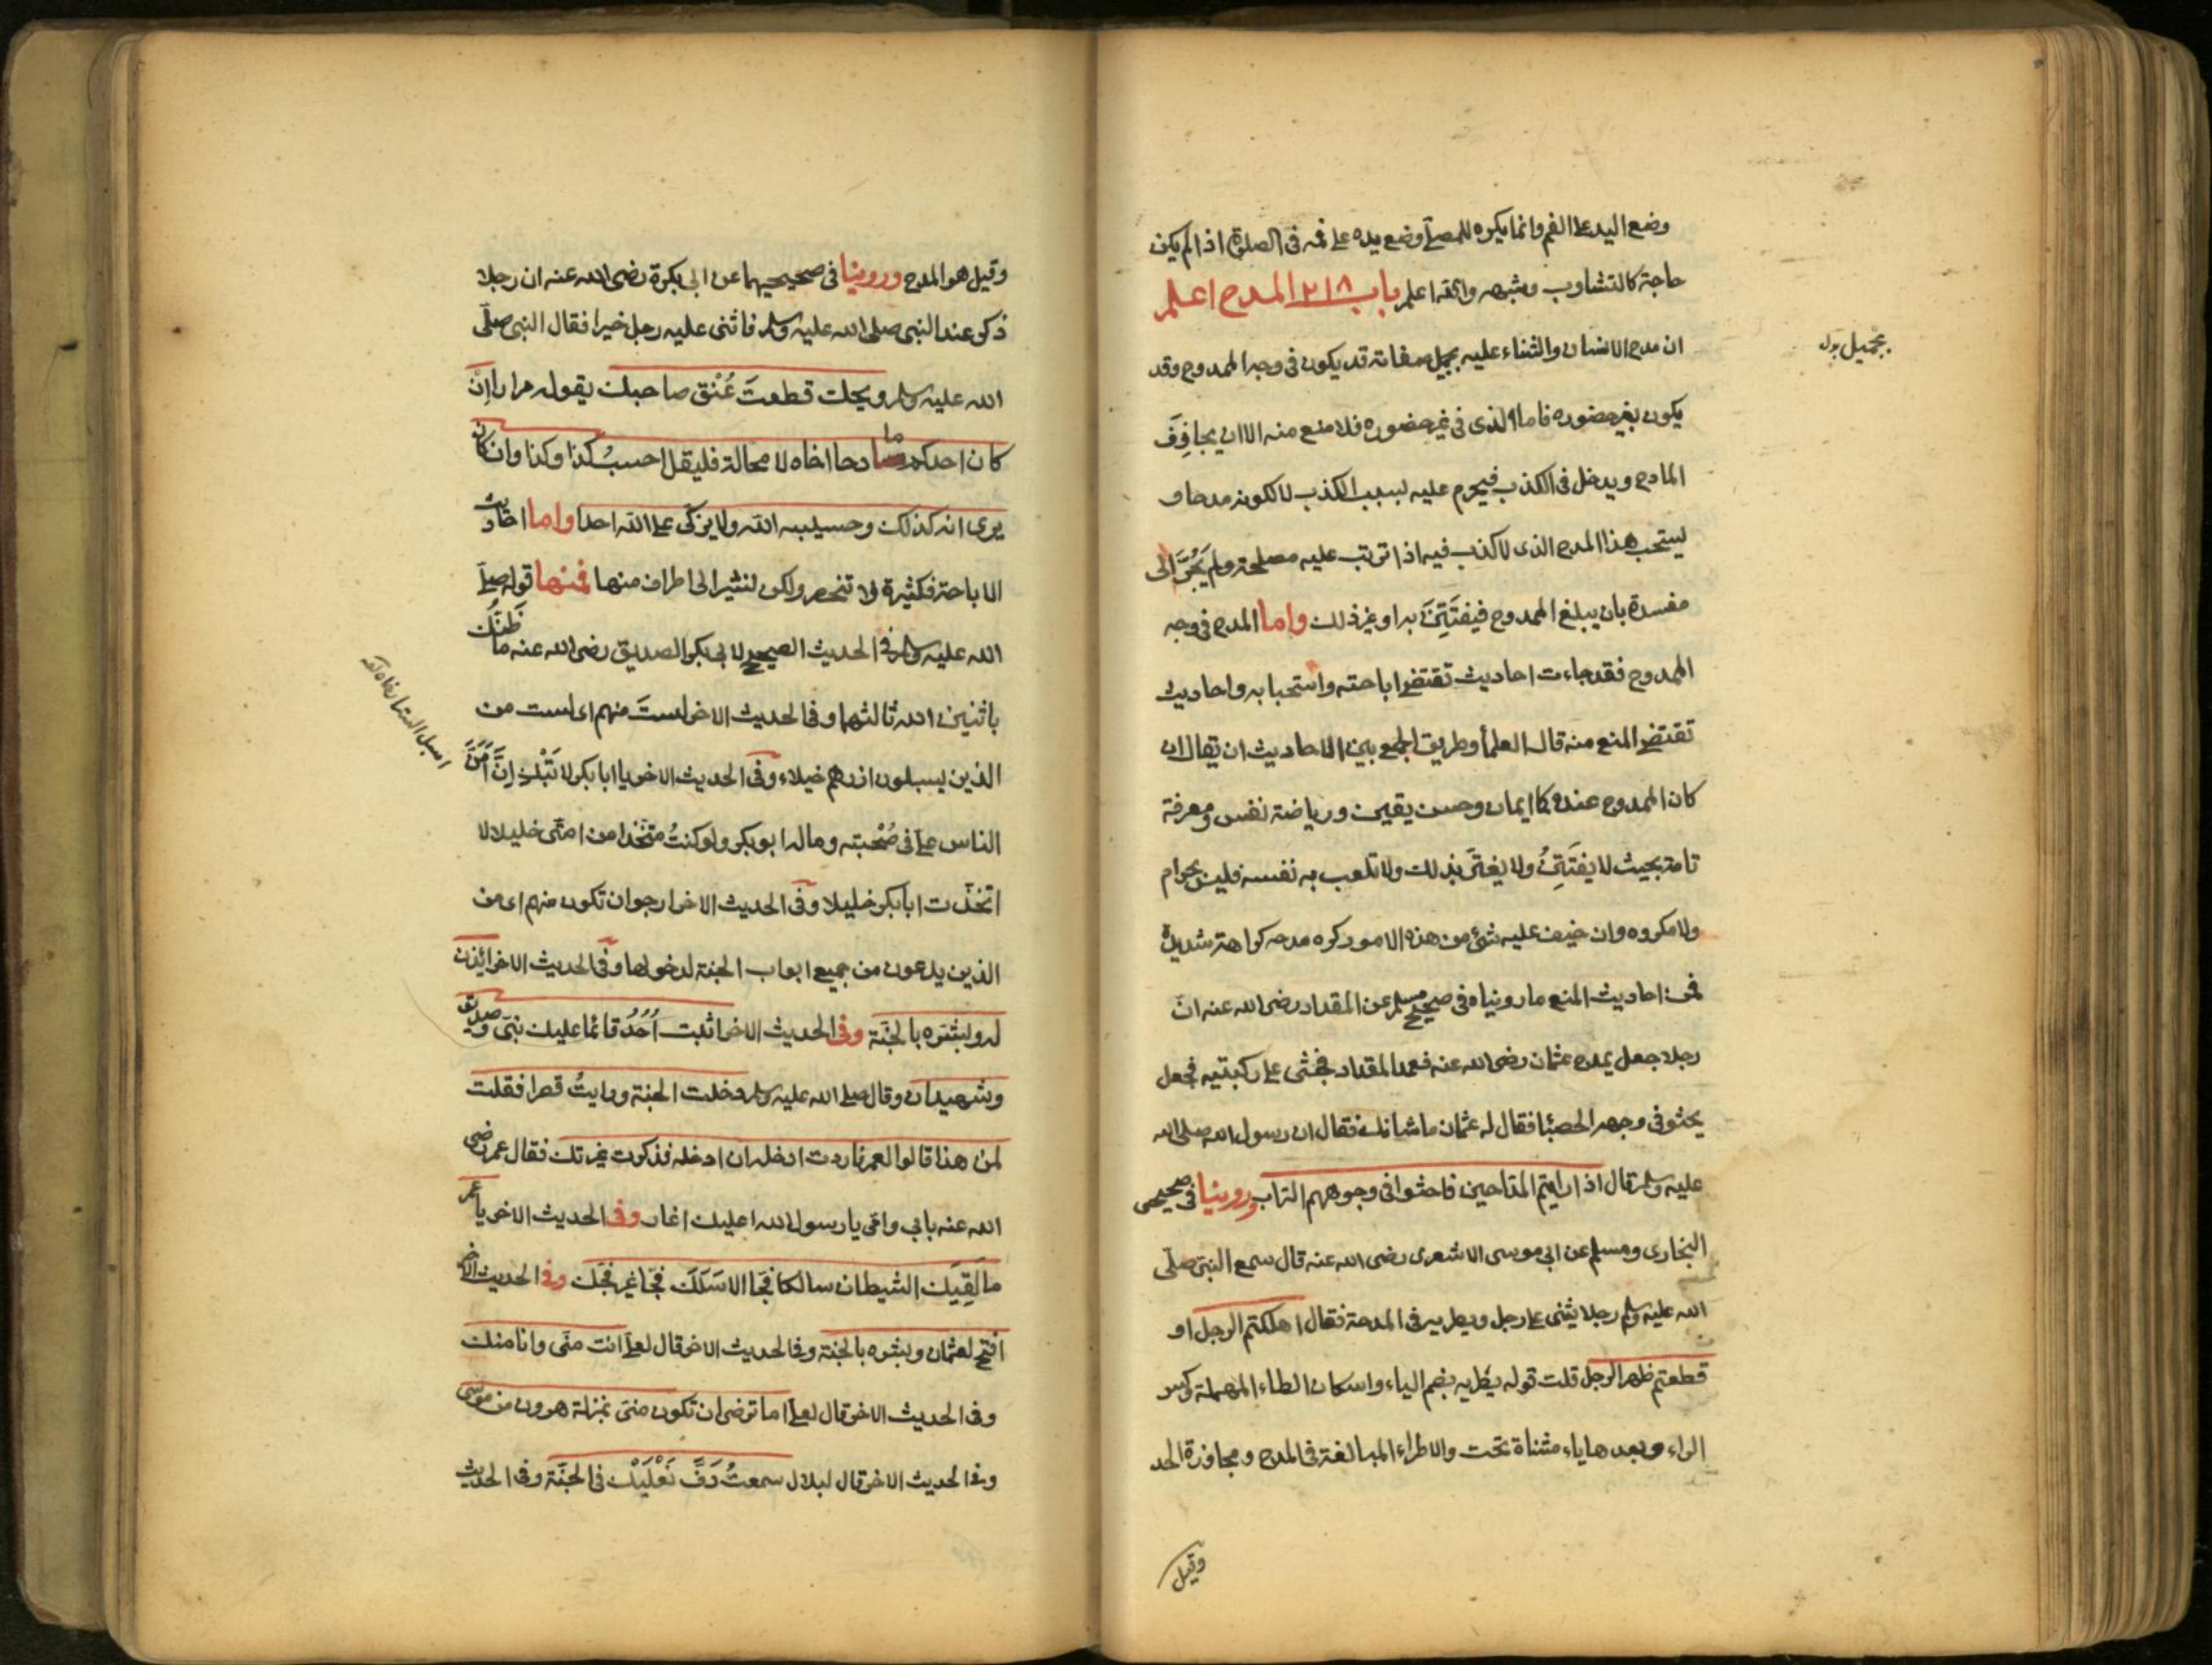 وضع اليد على الفم وانما يكره للمصلى وضع يده على فمه فى الصلوة اذا لم يكن
حاجة كالتثاوب وشبهه والله اعلم باب ٢١٨ المدح اعلم
ان مدح الانسان والثناء عليه بجميل صفاته قد يكون فى وجه الممدوح وقد
بجميل
يكون بغير حضوره فاما الذى فى غير حضوره فلا منع منه الا ان يجازف
المادح ويدخل فى الكذب فيحرم عليه بسبب الكذب لا لكونه مدحا و
يستحب هذا المدح الذى لا كذب فيه اذا ترتب عليه مصلحة ولم يجر الى
مفسدة بان يبلغ الممدوح فيفتتن به او غير ذلك واما المدح فى وجه
الممدوح فقد جاءت احاديث تقتضى اباحته واستحبابه واحاديث
تقتضى المنع منه قال العلمأ وطريق الجمع بين الاحاديث ان يقال ان
كان الممدوح عنده كما ايمان وحسن يقين ورياضة نفس ومعرفة
تامة بحيث لا يفتتن ولا يغتر بذلك ولا تلعب به نفسه فليس بحرام
ولا مكروه وان خيف عليه شئ من هذه الامور كره مدحه كراهة شديدة
فمن احاديث المنع ما رويناه فى صحيح مسلم عن المقداد رضى الله عنه ان
رجلا جعل يمدح عثمان رضى الله عنه فعمد المقداد فجثى على ركبتيه فجعل
يحثو فى وجهه الحصبا فقال له عثمان ما شانك فقال ان رسول الله صلى الله
عليه وسلم قال اذا رايتم المداحين فاحثوا فى وجوههم التراب وروينا فى صحيحى
البخارى ومسلم عن ابى موسى الاشعرى رضى الله عنه قال سمع النبى صلى
الله عليه وسلم رجلا يثنى على رجل ويطريه فى المدحة فقال اهلكتم الرجل او
قطعتم ظهر الرجل قلت قوله يطريه بضم الياء واسكان الطاء المهملة وكسر
الراء وبعدها ياء مثناة تحت والاطراء المبالغة فى المدح ومجاوزة الحد
وقيل
وقيل هو المدح وروينا فى صحيحيهما عن ابى بكرة رضى الله عنه ان رجلا
ذكر عند النبى صلى الله عليه وسلم فاثنى عليه رجل خيرا فقال النبى صلى
الله عليه وسلم ويحك قطعتَ عُنْق صاحبك يقوله مرارا اِنْ
كان احدكم مادحا اخاه لا محالة فليقل احسبُ كذا وكذا وان كان
يرى انه كذلك وحسيبه الله ولا يزكى على الله احدا واما احاديث
الاباحة فكثيرة لا تنحصر ولكن لنشير الى اطراف منها فمنها قوله صلى
الله عليه وسلم فى الحديث الصحيح لابى بكر الصديق رضى الله عنه ما ظَنُّك
باثنين الله ثالثهما وفى الحديث الاخر لستَ منهم اى لست من
الذين يسبلون ازرهم خيلاء وفى الحديث الاخر يا ابا بكر لا تَبْك اِنَّ اَمَنَّ
اسبل الستر
الناس على فى صُحْبته وماله ابو بكر ولو كنتُ متخذا من امتى خليلا لا
اتخذت ابا بكر خليلا وفى الحديث الاخر ارجو ان تكون منهم اى من
الذين يدعون من جميع ابواب الجنة لدخولها وفى الحديث الاخر ائذن
له وبشره بالجنة وفى الحديث الاخر اثبت اُحُدُ فانما عليك نبى وصديق
وشهيدان وقال صلى الله عليه وسلم دخلت الجنة ورايتُ قصرا فقلت
لمن هذا قالوا لعمر فاردت ان ادخله فذكرت غيرتك فقال عمر رضى
الله عنه بابى وامى يا رسول الله اعليك اغار وفى الحديث الاخر يا عمر
ما لَقِيَك الشيطان سالكا فجّا الا سَلَكَ فجّا غير فجّك وفى الحديث الاخر
افتح لعثمان وبشره بالجنة وفى الحديث الاخر قال لعلى انت منى وانا منك
وفى الحديث الاخر قال لعلى اما ترضى ان تكون منى بمنزلة هرون من موسى
وفى الحديث الاخر قال لبلال سمعتُ دَفَّ نَعْلَيْك فى الجنّة وفى الحديث